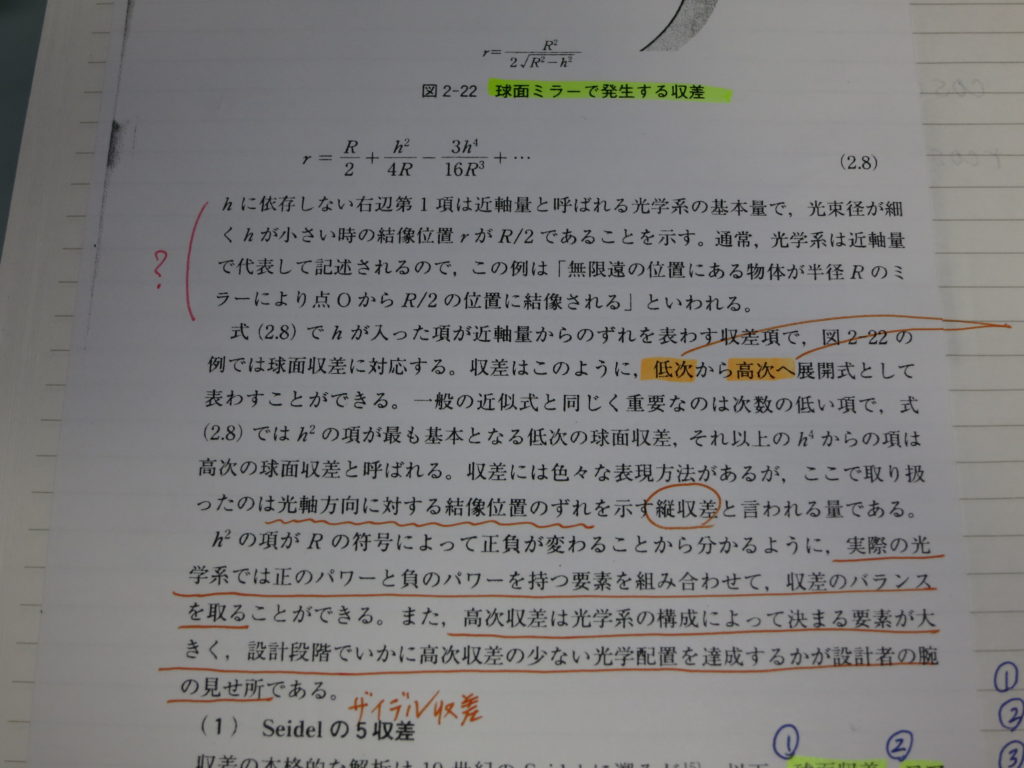 r=R²/2√R²−h²
図 2-22 球面ミラーで発生する収差
r = R/2 + h²/4R − 3h⁴/16R³ + ⋯ (2.8)
h に依存しない右辺第 1 項は近軸量と呼ばれる光学系の基本量で，光束径が細
く h が小さい時の結像位置 r が R/2 であることを示す。通常，光学系は近軸量
?
で代表して記述されるので，この例は「無限遠の位置にある物体が半径 R のミ
ラーにより点 O から R/2 の位置に結像される」といわれる。
式 (2.8) で h が入った項が近軸量からのずれを表わす収差項で，図 2-22 の
例では球面収差に対応する。収差はこのように，低次から高次へ展開式として
表わすことができる。一般の近似式と同じく重要なのは次数の低い項で，式
(2.8) では h² の項が最も基本となる低次の球面収差，それ以上の h⁴ からの項は
高次の球面収差と呼ばれる。収差には色々な表現方法があるが，ここで取り扱
ったのは光軸方向に対する結像位置のずれを示す縦収差と言われる量である。
h² の項が R の符号によって正負が変わることから分かるように，実際の光
学系では正のパワーと負のパワーを持つ要素を組み合わせて，収差のバランス
を取ることができる。また，高次収差は光学系の構成によって決まる要素が大
きく，設計段階でいかに高次収差の少ない光学配置を達成するかが設計者の腕
の見せ所である。
ザイデル収差
(1) Seidel の 5 収差
① ②
収差の本格的な解析は 19 世紀の Seidel に遡る
球面収差
①
②
③
cos